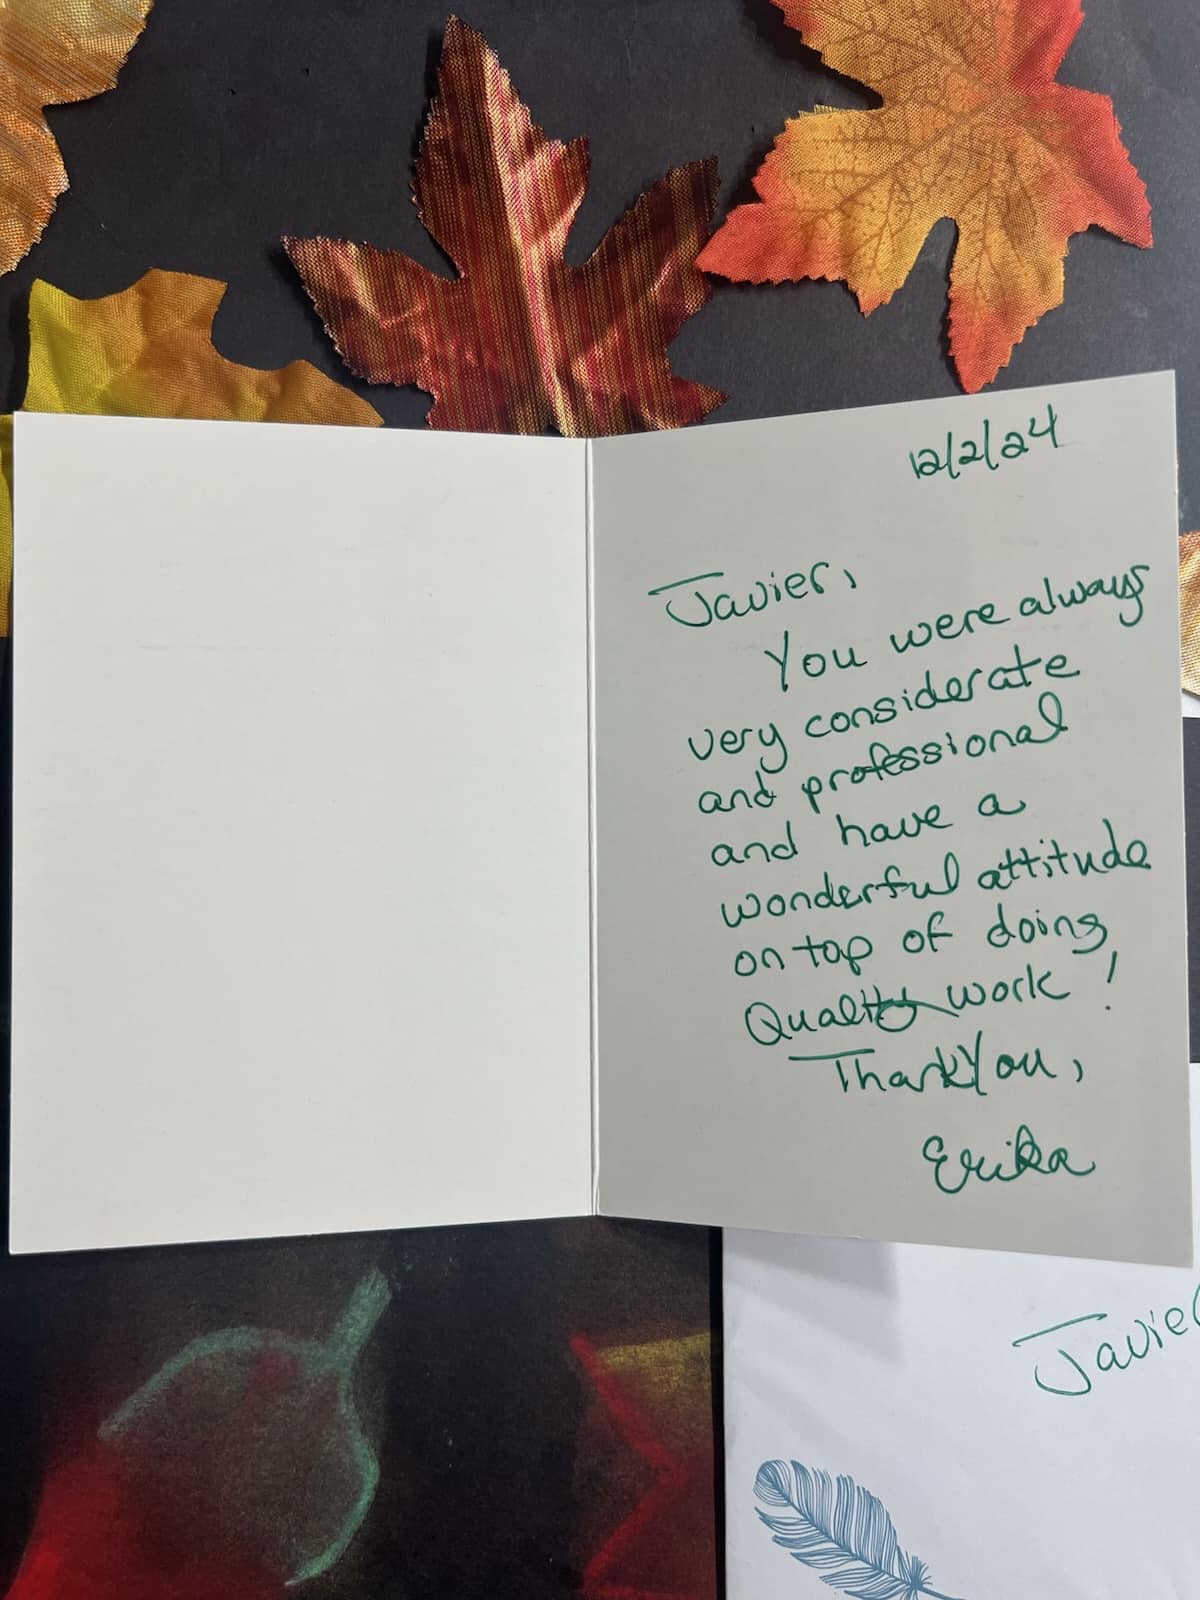 12/2/24
Javier,
You were always
very considerate
and professional
and have a
wonderful attitude
on top of doing
Quality work!
Thank You,
Erika
Javier